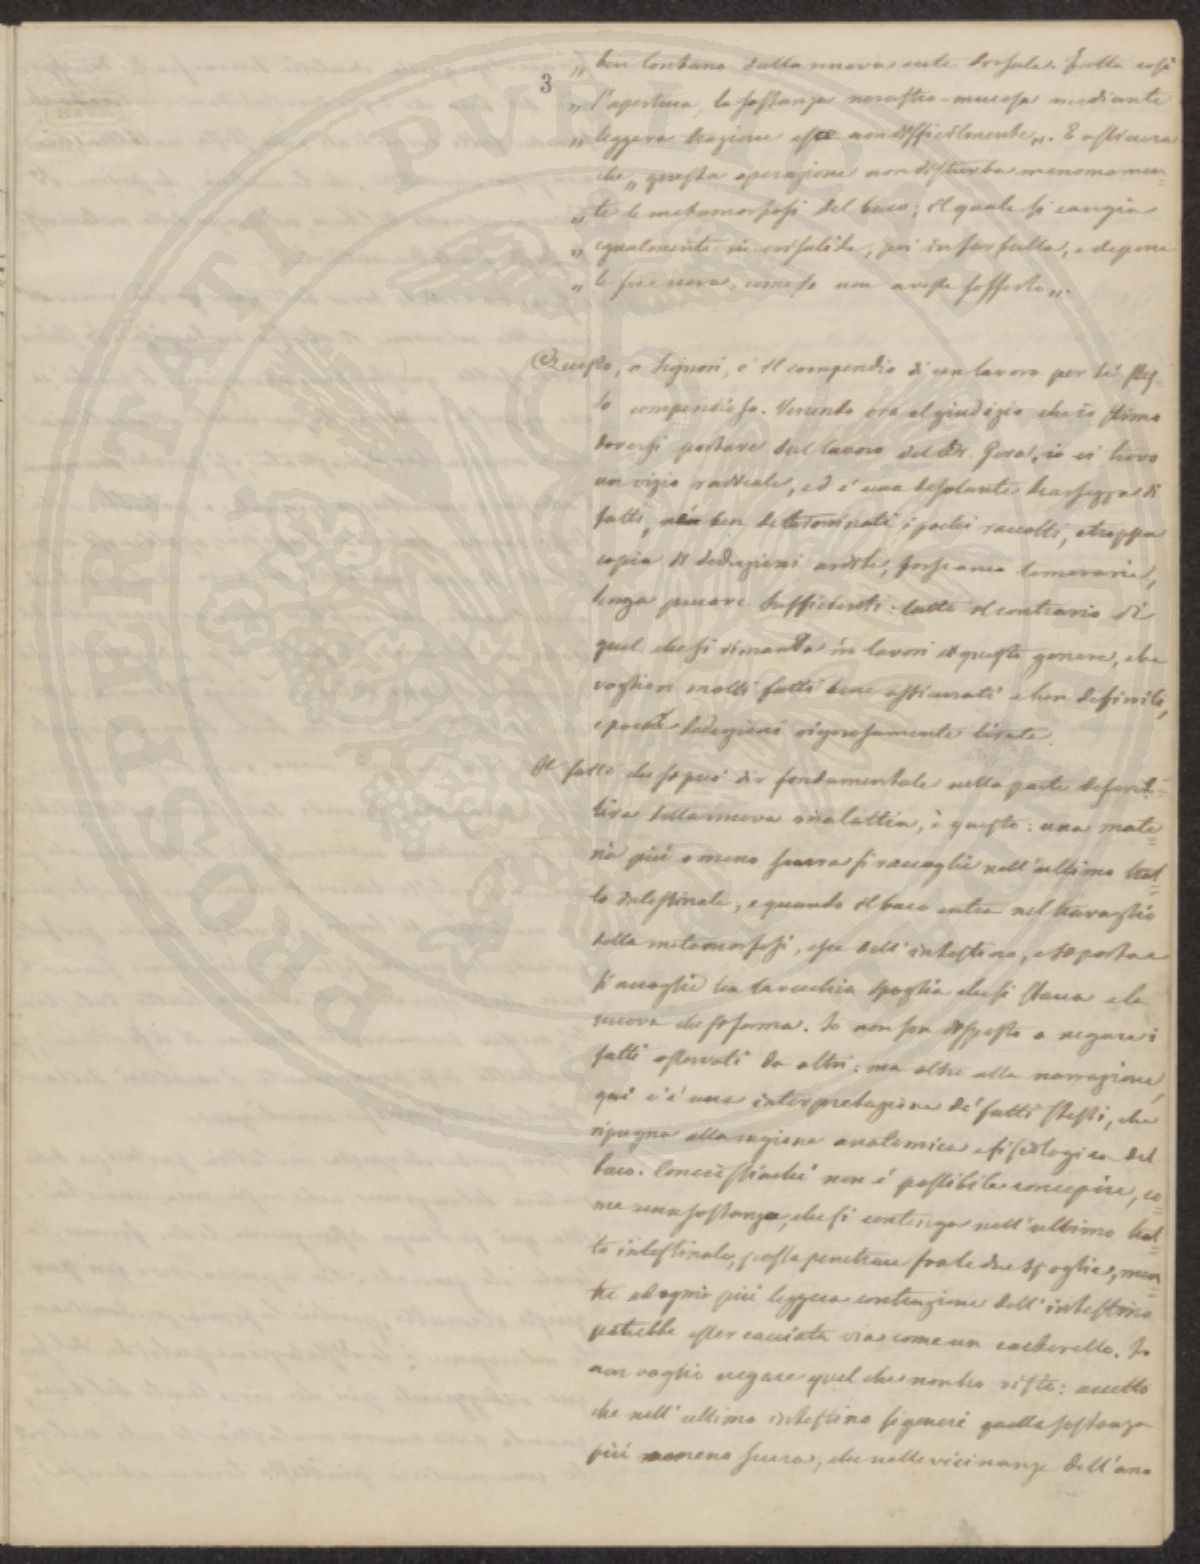 3
„ ben lontano dalla nuova cute dorsale. Fatta così
„ l'apertura, la sostanza nerastro-mucosa mediante
„ leggera trazione esce non difficilmente„. E assicura
che „ questa operazione non disturba menomamen=
„ te le metamorfosi del baco; il quale si cangia
„ egualmente in crisalide, poi in farfalla, e depone
„ le sue uova, come se non avesse sofferto„.
Questo, o Signori, è il compendio di un lavoro per sé stes=
so compendioso. Venendo ora al giudizio che io stimo
doversi portare sul lavoro del Dr. Gera, io ci trovo
un vizio radicale, ed è una desolante scarsezza di
fatti, ben determinati i pochi raccolti, e troppa
copia di deduzioni ardite, fors'anco temerarie,
senza prove sufficienti: tutto il contrario di
quel che si dimanda in lavori di questo genere, che
voglion molti fatti bene assicurati e ben definiti,
e poche deduzioni rigorosamente tirate.
Il fatto che si può dir fondamentale nella parte descrit=
tiva della nuova malattia, è questo: una mate=
ria più o meno scura si raccoglie nell'ultimo trat=
to intestinale, e quando il baco entra nel travaglio
della metamorfosi, esce dell'intestino, e si porta e
si accoglie tra la vecchia spoglia che si stacca e la
nuova che si forma. Io non son disposto a negare i
fatti osservati da altri: ma oltre alla narrazione,
qui c'è una interpretazione de' fatti stessi, che
ripugna alla ragione anatomica e fisiologica del
baco. Conciossiaché non è possibile concepire, co=
me una sostanza, che si contenga nell'ultimo trat=
to intestinale, possa penetrare fra le due spoglie, men=
tre ad ogni più leggera contrazione dell'intestino
potrebbe esser cacciata via come un cacherello. Io
non voglio negare quel che non ho visto: accetto
che nell'ultimo intestino si generi quella sostanza
più o meno scura, che nelle vicinanze dell'ano